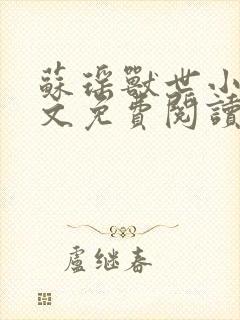 蘇瑤獸世小
文免費閱讀
盧继春